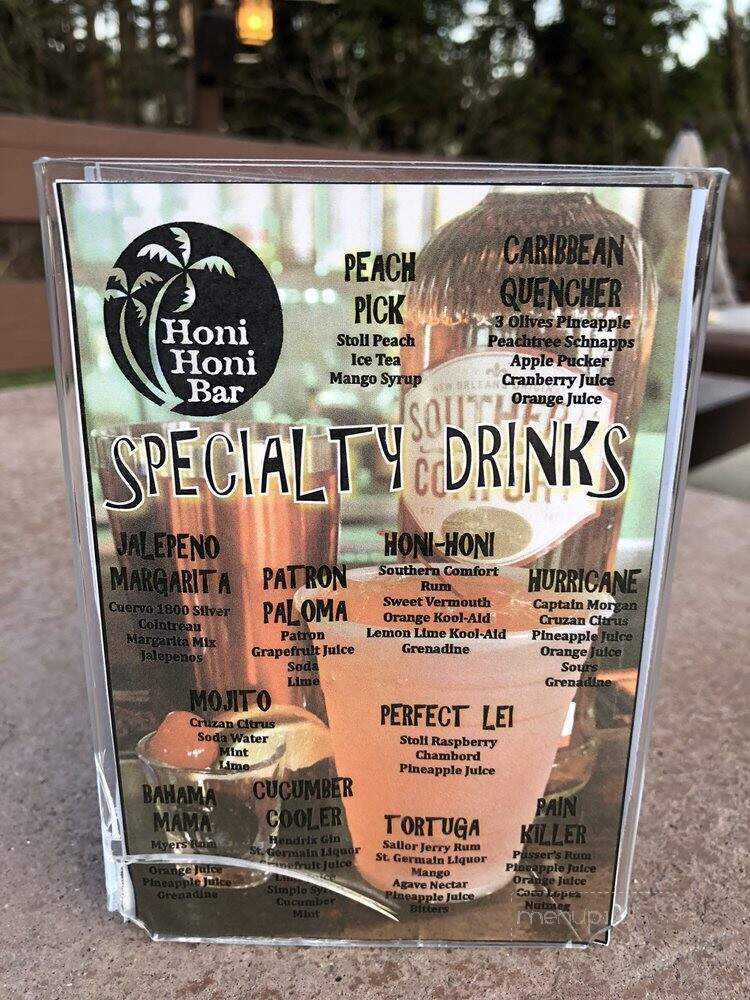 Honi
Honi
Bar
PEACH
PICK
Stoli Peach
Ice Tea
Mango Syrup
CARIBBEAN
QUENCHER
3 Olives Pineapple
Peachtree Schnapps
Apple Pucker
Cranberry Juice
Orange Juice
NEW ORLEANS ORIGINAL
SOUTHERN
COMFORT
SPECIALTY DRINKS
JALEPENO
MARGARITA
Cuervo 1800 Silver
Cointreau
Margarita Mix
Jalepenos
PATRON
PALOMA
Patron
Grapefruit Juice
Soda
Lime
HONI-HONI
Southern Comfort
Rum
Sweet Vermouth
Orange Kool-Aid
Lemon Lime Kool-Aid
Grenadine
HURRICANE
Captain Morgan
Cruzan Citrus
Pineapple Juice
Orange Juice
Sours
Grenadine
MOJITO
Cruzan Citrus
Soda Water
Mint
Lime
PERFECT LEI
Stoli Raspberry
Chambord
Pineapple Juice
BAHAMA
MAMA
Myers Rum
Orange Juice
Pineapple Juice
Grenadine
CUCUMBER
COOLER
Hendrix Gin
St. Germain Liquor
Grapefruit Juice
Lime Juice
Simple Syrup
Cucumber
Mint
TORTUGA
Sailor Jerry Rum
St. Germain Liquor
Mango
Agave Nectar
Pineapple Juice
Bitters
PAIN
KILLER
Pusser's Rum
Pineapple Juice
Orange Juice
Coco Lopez
Nutmeg
menupix